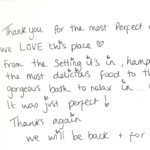 Thank you for the most Perfect
we LOVE this place ♡
From the setting it's in, hamp
the most delicious food to th
gorgeous bath to relax in ...
It was just perfect!
Thanks again
we will be back + for